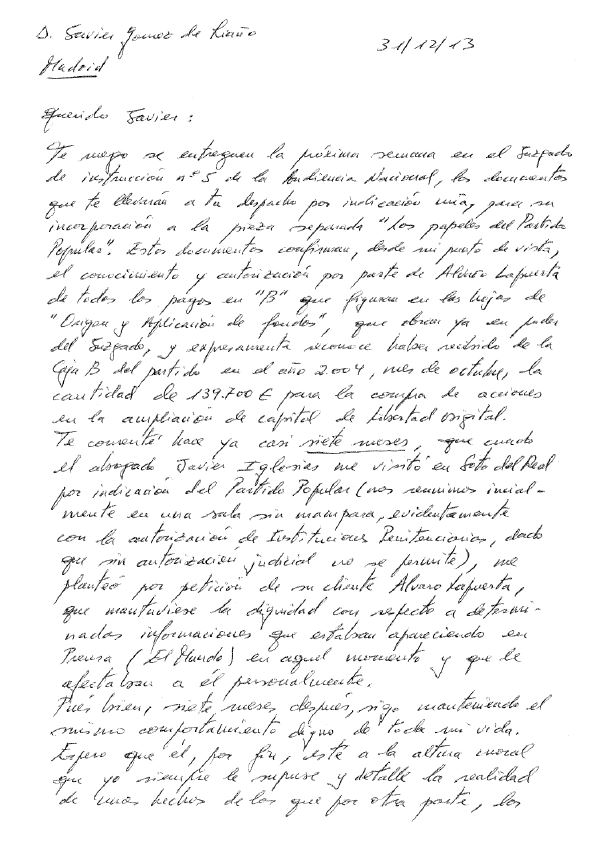 D. Javier Gomez de Liaño
31/12/13
Madrid
Querido Javier:
Te ruego se entreguen la próxima semana en el Juzgado
de instrucción nº 5 de la Audiencia Nacional, los documentos
que te llevarán a tu despacho por indicación mía, para su
incorporación a la pieza separada "Los papeles del Partido
Popular". Estos documentos confirman, desde mi punto de vista,
el conocimiento y autorización por parte de Alvaro Lapuerta
de todos los pagos en "B" que figuran en las hojas de
"Origen y Aplicación de fondos", que obran ya en poder
del Juzgado, y expresamente reconoce haber recibido de la
Caja B del partido en el año 2.004, mes de octubre, la
cantidad de 139.700 € para la compra de acciones
en la ampliación de capital de Libertad Digital.
Te comenté hace ya casi siete meses, que cuando
el abogado Javier Iglesias me visitó en Soto del Real
por indicación del Partido Popular (nos reunimos inicial-
mente en una sala sin mampara, evidentemente
con la autorización de Instituciones Penitenciarias, dado
que sin autorización judicial no se permite), me
planteó por petición de su cliente Alvaro Lapuerta,
que mantuviese la dignidad con respecto a determi-
nadas informaciones que estaban apareciendo en
Prensa (El Mundo) en aquel momento y que le
afectaban a él personalmente.
Pués bien, siete meses después, sigo manteniendo el
mismo comportamiento digno de toda mi vida.
Espero que él, por fin, esté a la altura moral
que yo siempre le supuse y detalle la realidad
de unos hechos de los que por otra parte, los